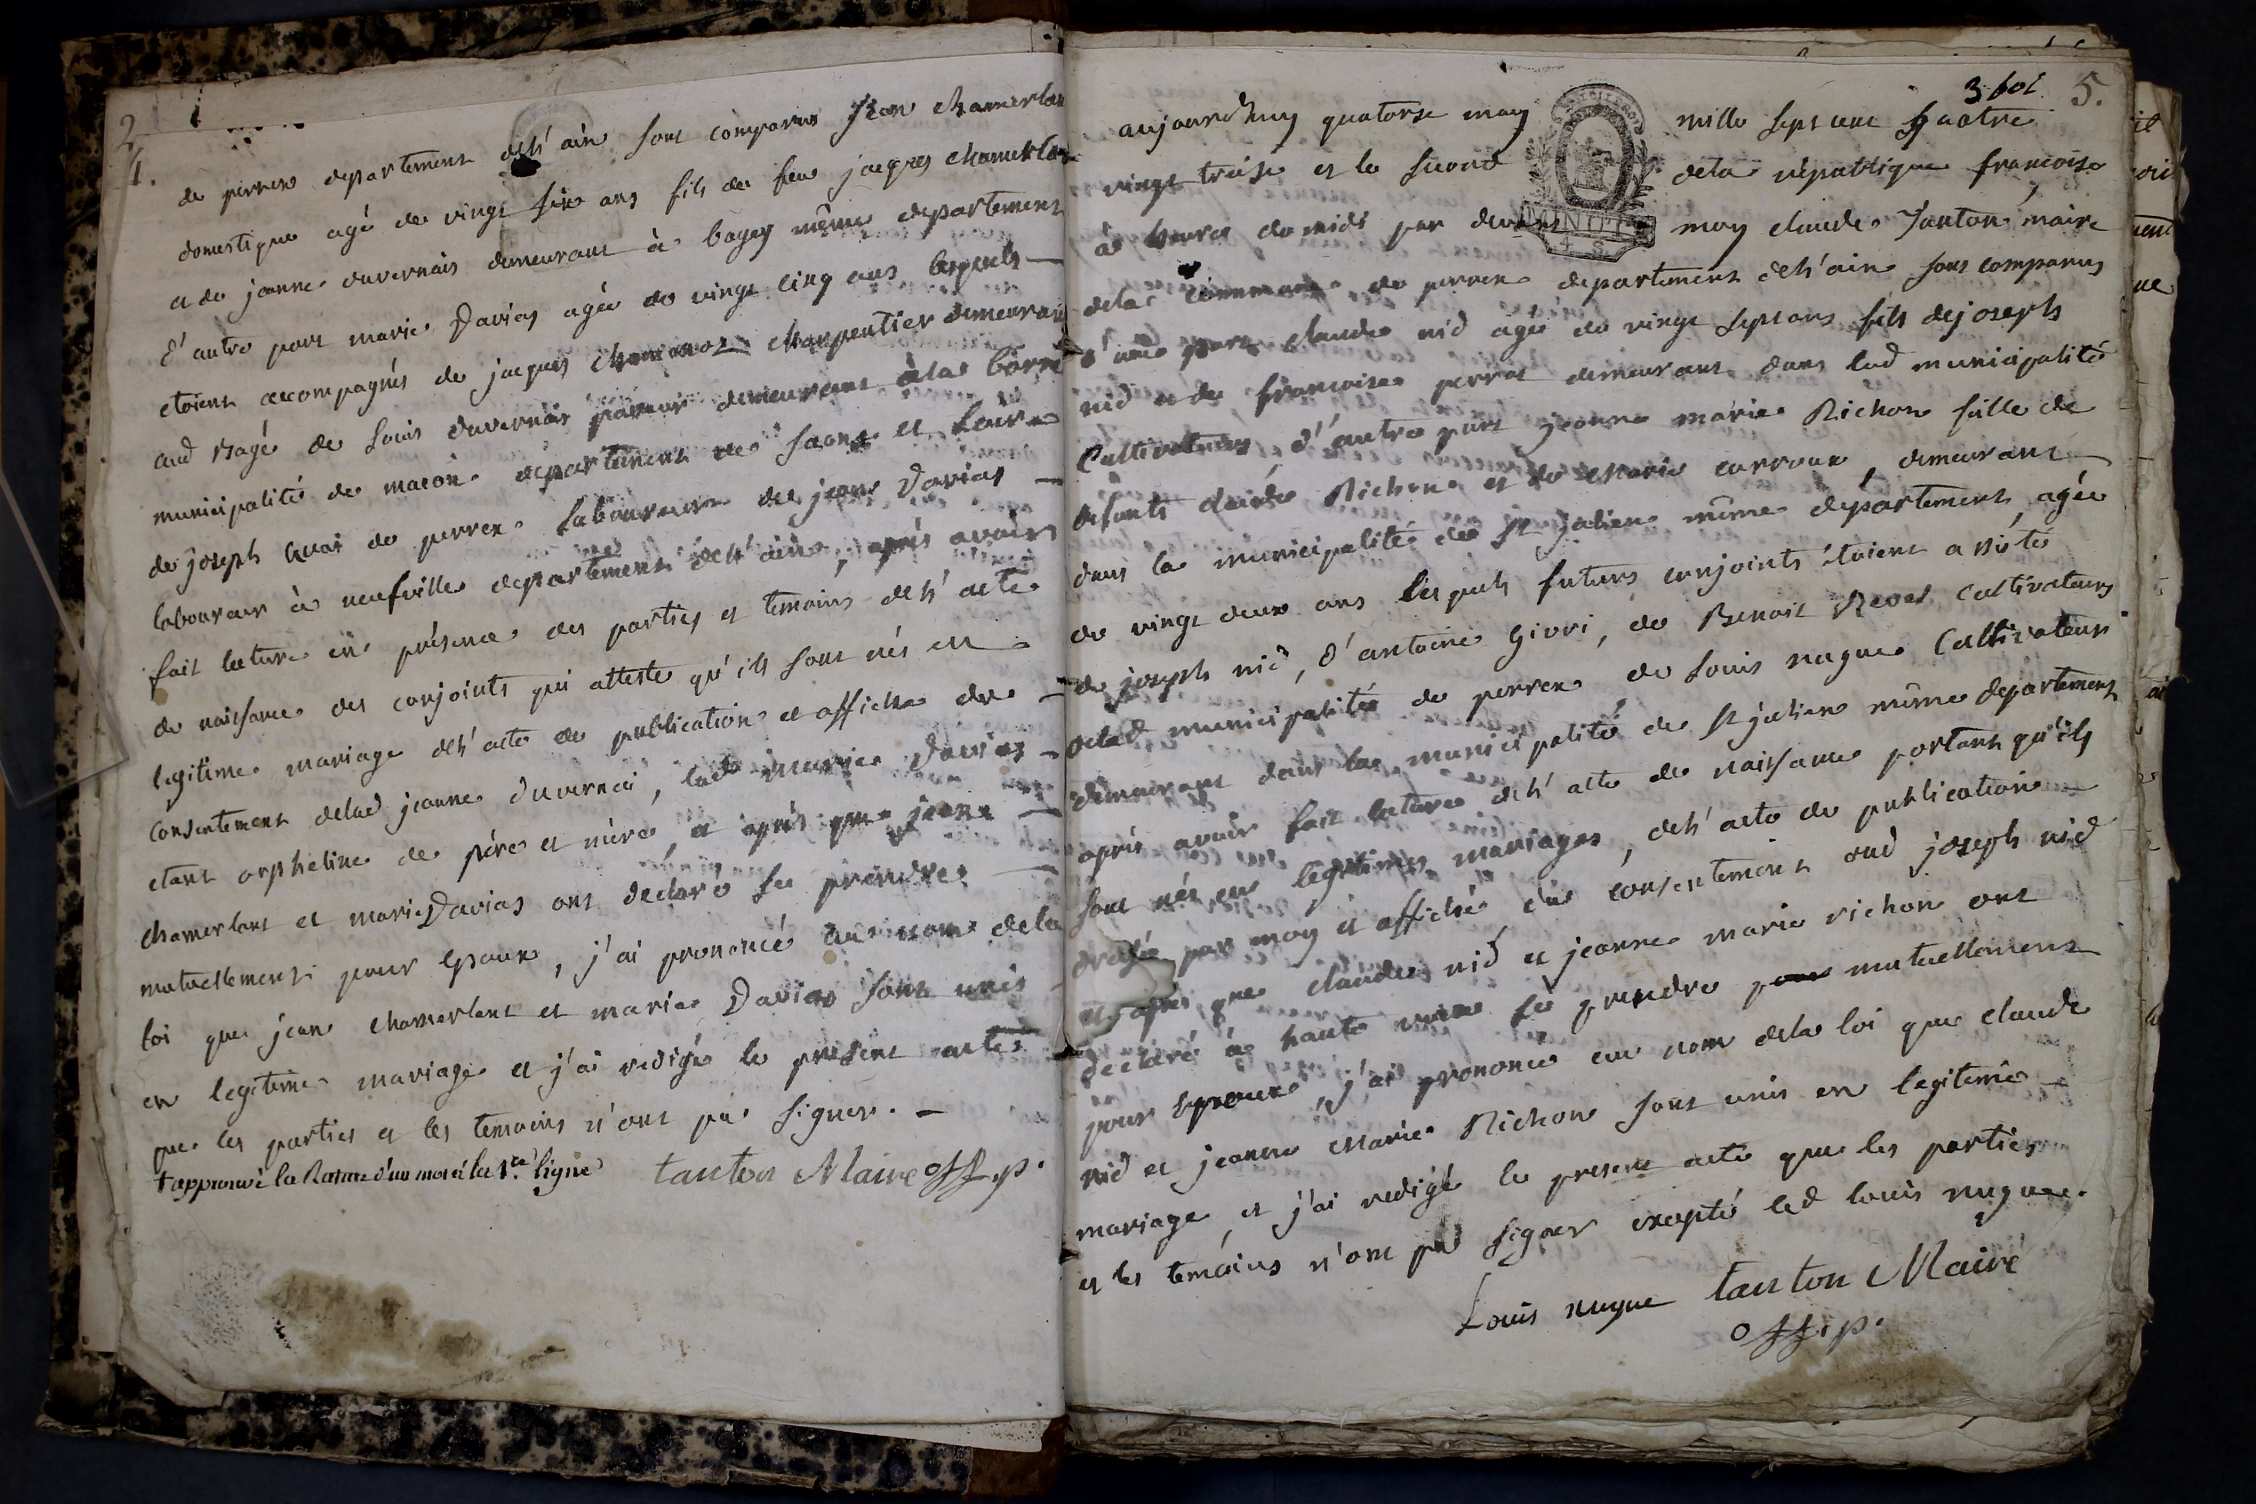 2
4.
de perrex departement del'ain sont comparus jean chamerlan
domestique agé de vingt six ans fils de feu jacques chamerlan
et de jeanne duvernais demeurant à bagey même departement
d'autre part marie Davias agée de vingt cinq ans lesquels
etoient accompagnés de jacques charpentier demeurant
aud de Louis duvernais demeurant àla barre
municipalité de macon departement de saone et Loire
de joseph quai de perrex laboureur de jean Davias
laboureur à neufville departement del'ain, après avoir
fait lecture en présence des parties et temoins del'acte
de naissance des conjoints qui atteste qu'ils sont nés en
legitime mariage del'acte de publication et affiche du
consentement delad jeanne duvernai, lad marie Davias
etant orpheline de père et mère, et après que jean
chamerlant et marie Davias ont declaré se prendre
mutuellement pour epoux, j'ai prononcé au nom dela
loi que jean chamerlant et marie Davias sont unis
en legitime mariage et j'ai redigé le present acte
que les parties et les temoins n'ont pu signer.
+ approuvé la Rature d'un mot à la 1.re ligne tanton Maire off.p.
3 fol 5.
aujourdhuy quatorse may mille sept cent quatre
vingt treise et le second dela république francoise
à heure de midi par devant moy claude Tanton maire
dela commune de perrex departement del'ain sont comparus
d'une part claude nid agé de vingt sept ans fils de joseph
nid et de francoise perrat demeurant dans lad municipalité
Cultivateurs, d'autre part jeanne marie Richon fille de
defunts claude Richon et de Marie carroux, demeurant
dans la municipalité de St julien même département, agée
de vingt deux ans lesquels futurs conjoints étoient assistés
de joseph nid, d'antoine Givri, de Benoit Revel cultivateurs
delad municipalité de perrex de Louis nugue Cultivateur
demeurant dans la municipalité de St julien même departement
après avoir fait lecture del'acte de naissance portant qu'ils
sont nés en legitimes mariages, del'acte de publication
dressé par moy et affiché, du consentement dud joseph nid
et après que claude nid et jeanne marie richon ont
declaré à haute voix se prendre pour mutuellement
pour epoux, j'ai prononcé au nom dela loi que claude
nid et jeanne Marie Richon sont unis en legitime
mariage, et j'ai redigé le present acte que les parties
et les temoins n'ont pu signer excepté led louis nugue.
Louis nugue tanton Maire
off.p.